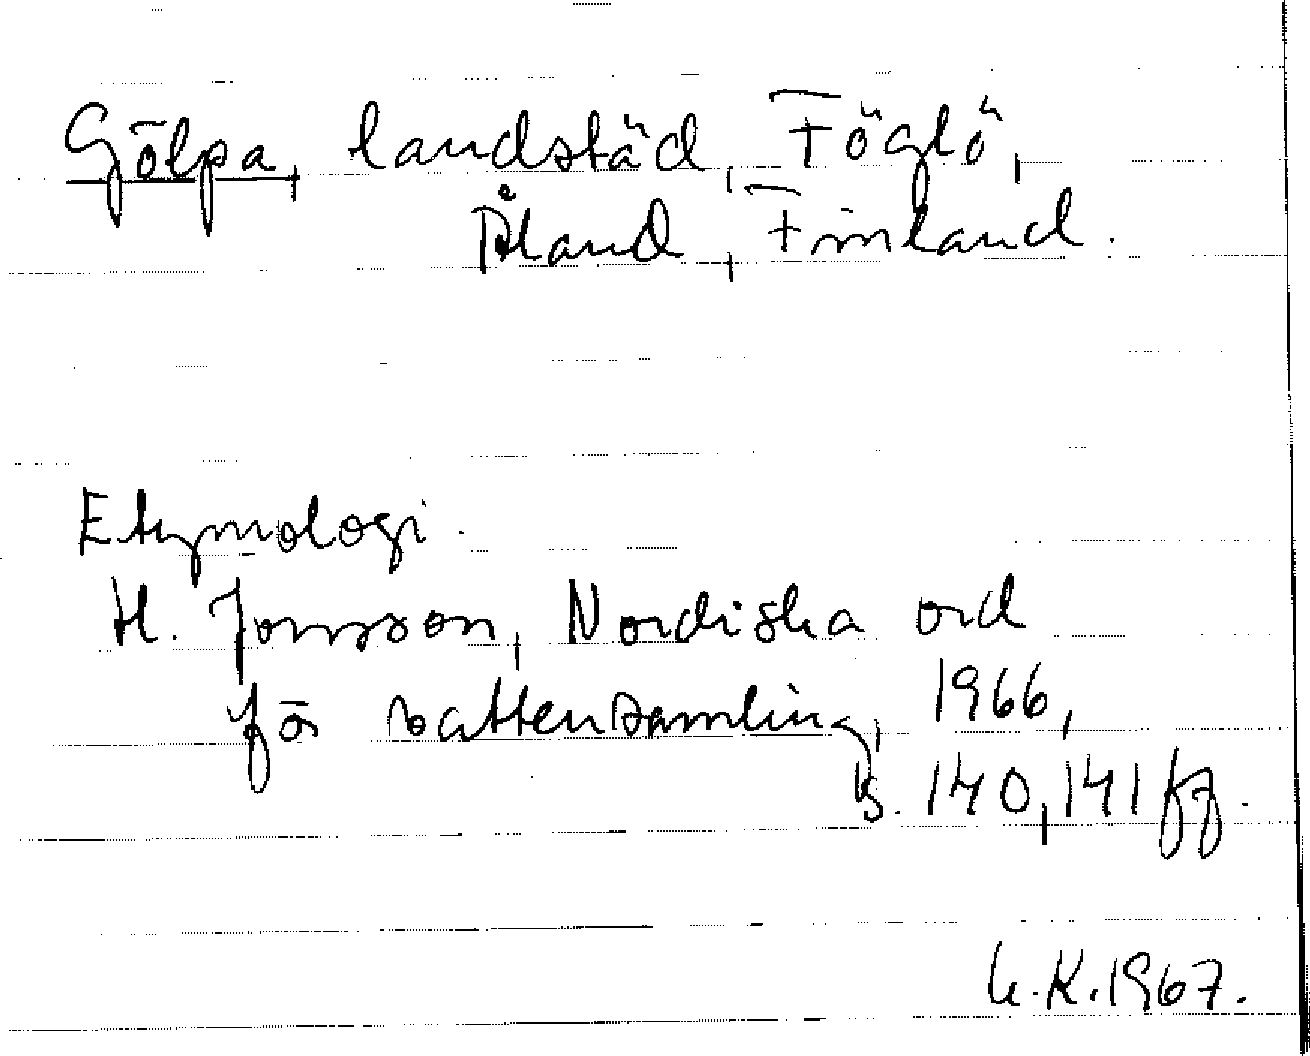 Gölpa, landstäd, Föglö,
Åland, Finland.
Etymologi.
H. Jonsson, Nordiska ord
för vattensamling, 1966,
s. 140, 141 ff.
K. 1967.